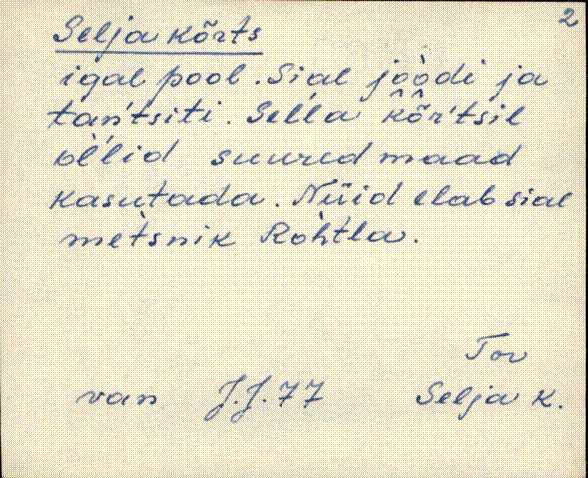 2
Selja kõrts
igal pool. Sial jòòdi ja
tan'tsiti. Sel'l'a kȭr'tsil
òl'lid suured maad
kasutada. Nüid elab sial
mètsnik Ròhtla.
Tor
van J.J. 77 Selja k.